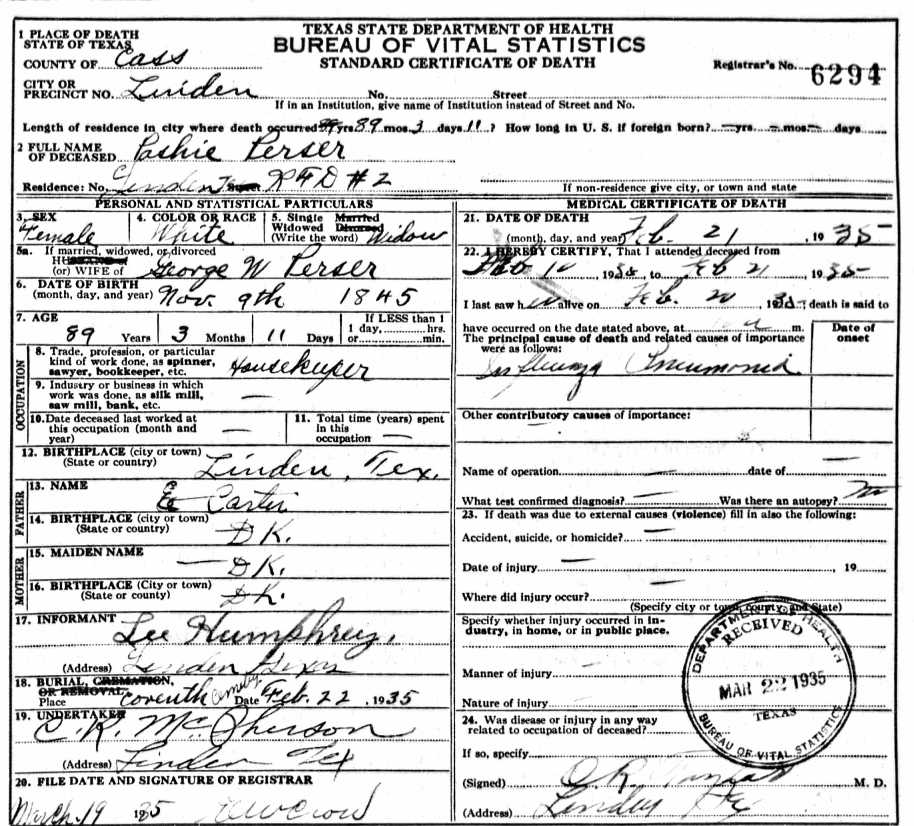 TEXAS STATE DEPARTMENT OF HEALTH
BUREAU OF VITAL STATISTICS
STANDARD CERTIFICATE OF DEATH
Registrar's No. 6294
1 PLACE OF DEATH
STATE OF TEXAS
COUNTY OF Cass
CITY OR
PRECINCT NO. Linden No. Street
If in an Institution, give name of Institution instead of Street and No.
Length of residence in city where death occurred yrs 89 mos. 3 days 11? How long in U. S. if foreign born? — yrs. — mos. — days
2 FULL NAME
OF DECEASED Pashie Perser
Residence: No. Linden Street RFD #2
If non-residence give city, or town and state
PERSONAL AND STATISTICAL PARTICULARS
3. SEX
Female
4. COLOR OR RACE
White
5. Single Married
Widowed Divorced
(Write the word) Widow
5a. If married, widowed, or divorced
HUSBAND of
(or) WIFE of George W Perser
6. DATE OF BIRTH
(month, day, and year) Nov. 9th 1845
7. AGE
89 Years 3 Months 11 Days
If LESS than 1
1 day, hrs.
or min.
OCCUPATION
8. Trade, profession, or particular
kind of work done, as spinner,
sawyer, bookkeeper, etc. Housekeeper
9. Industry or business in which
work was done, as silk mill,
saw mill, bank, etc. —
10. Date deceased last worked at
this occupation (month and
year) —
11. Total time (years) spent
in this
occupation —
12. BIRTHPLACE (city or town)
(State or country) Linden, Tex.
FATHER
13. NAME
Carter
14. BIRTHPLACE (city or town)
(State or country) D K.
MOTHER
15. MAIDEN NAME
— D K.
16. BIRTHPLACE (City or town)
(State or country) D K.
17. INFORMANT
Lee Humphrey,
(Address) Linden Texas
18. BURIAL, CREMATION,
OR REMOVAL
Place Coventh Cemetry Date Feb. 22, 1935
19. UNDERTAKER
C. K. McPherson
(Address) Linden Tex
20. FILE DATE AND SIGNATURE OF REGISTRAR
March 19 1935
MEDICAL CERTIFICATE OF DEATH
21. DATE OF DEATH
(month, day, and year) Feb. 21, 1935
22. I HEREBY CERTIFY, That I attended deceased from
Feb 10 1935, to Feb 21 1935
I last saw h alive on Feb. 20 1935, death is said to
have occurred on the date stated above, at m.
The principal cause of death and related causes of importance
were as follows:
Influenza Pneumonia
Date of
onset
Other contributory causes of importance:
Name of operation — date of —
What test confirmed diagnosis? — Was there an autopsy? no
23. If death was due to external causes (violence) fill in also the following:
Accident, suicide, or homicide? —
Date of injury —, 19
Where did injury occur? —
(Specify city or town, county, and State)
Specify whether injury occurred in in-
dustry, in home, or in public place.
Manner of injury —
Nature of injury —
24. Was disease or injury in any way
related to occupation of deceased?
If so, specify
(Signed) O. R. M. D.
(Address) Linden Tex
DEPARTMENT OF HEALTH
RECEIVED
MAR 22 1935
TEXAS
BUREAU OF VITAL STATISTICS